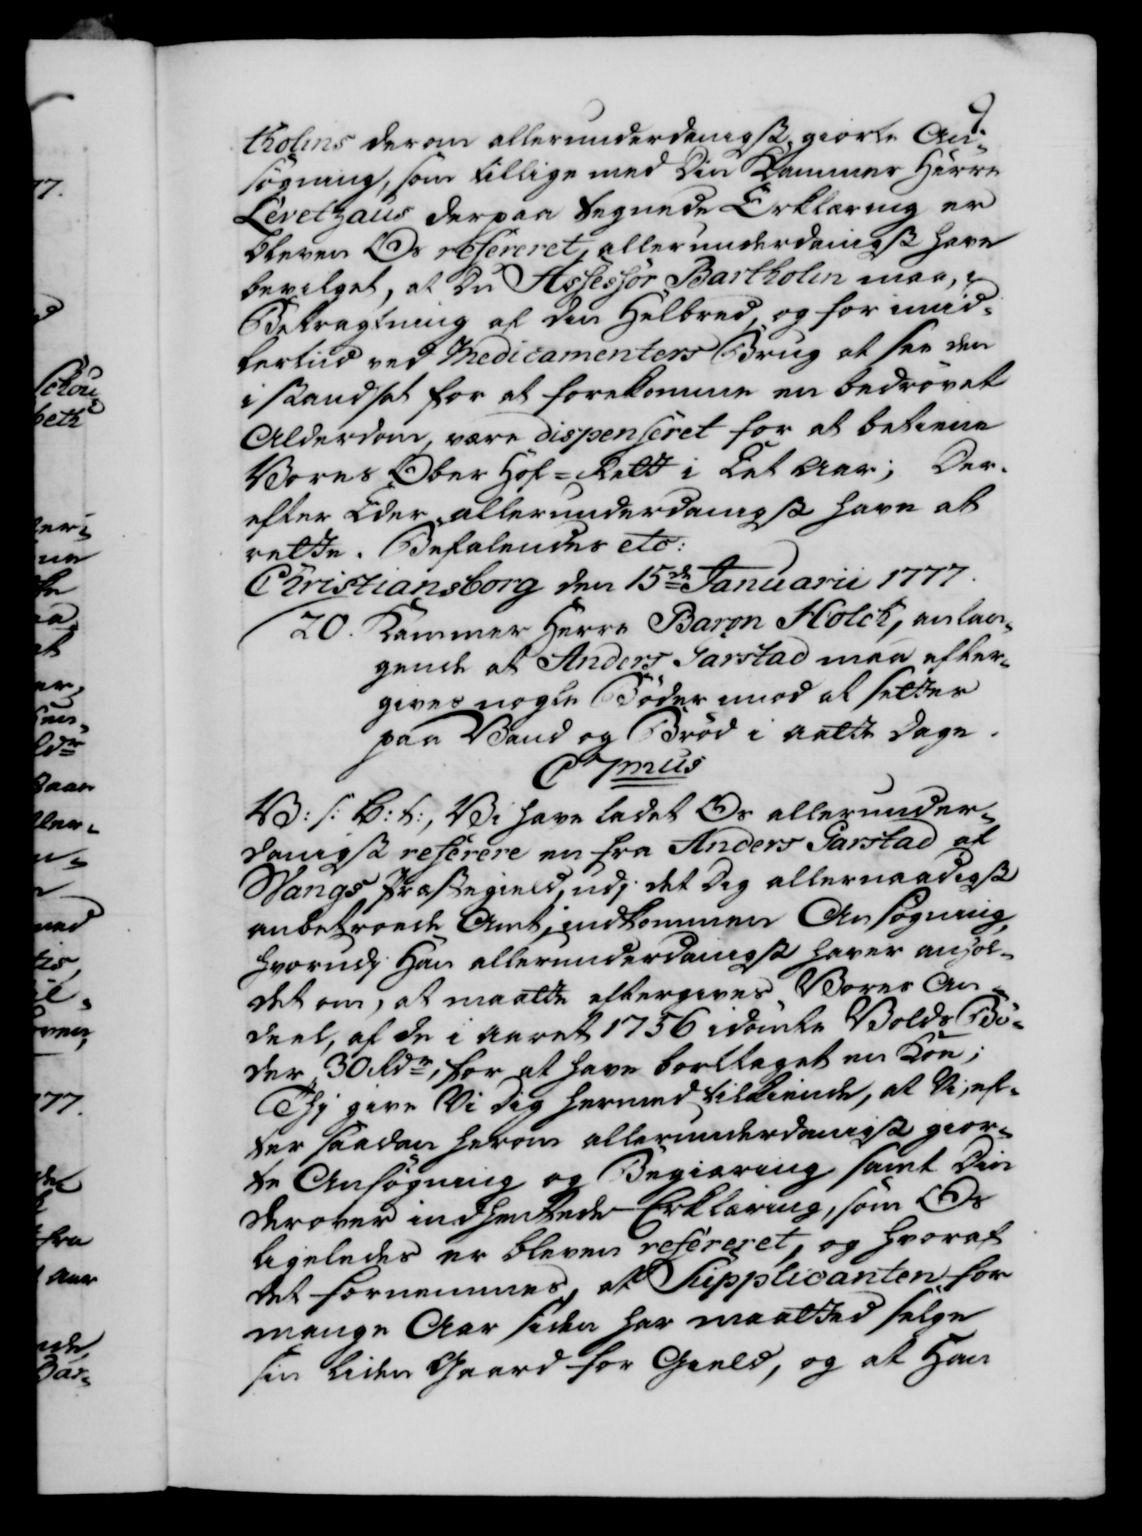 9.
tholins derom allerunderdanigst giorte An-
søgning, som tillige med Din Kammer Herre
Levetzaus derpaa tegnede Erklæring er
bleven Os refereret, allerunderdanigst have
bevilget, at Du Assessor Bartholin maa, i
Betragtning af den Helbred, og for imid-
lertiid ved Medicamenters Brug at see den
i standsat for at forekomme en bedrøvet
Alderdom, være dispenseret for at betiene
Vores Ober Hof-Rett i Eet Aar; Der-
efter Eder allerunderdanigst have at
rette. Befalendes etc:
Christiansborg den 15de Januarii 1777.
20. Kammer Herre Baron Holck, anlan-
gende at Anders Garstad maa efter-
gives nogle Bøder imod at settes
paa Vand og Brød i aatte Dage.
C 7mus
V: s: G: t:, Vi have ladet Os allerunder-
danigst referere en fra Anders Garstad af
Wangs Præstegield, udj det Dig allernaadigst
anbetroede Amt, indkommen Ansøgning,
hvorudj Han allerunderdanigst haver anhol-
det om, at maatte eftergives Vores An-
deel, af de i aaret 1756 idømte Volds Bø-
der 30 Rdr, for at have borttaget en Koe;
Thj give Vi Dig hermed tilkiende, at Vi, ef-
ter saadan herom allerunderdanigst gior-
te Ansøgning og Begiæring samt Din
derover indhentede Erklæring, som Os
ligeledes er bleven refereret, og hvoraf
det fornemmes, at Supplicanten for
mange Aar siden har maatted selge
sin liden Gaard for Gield, og at Han